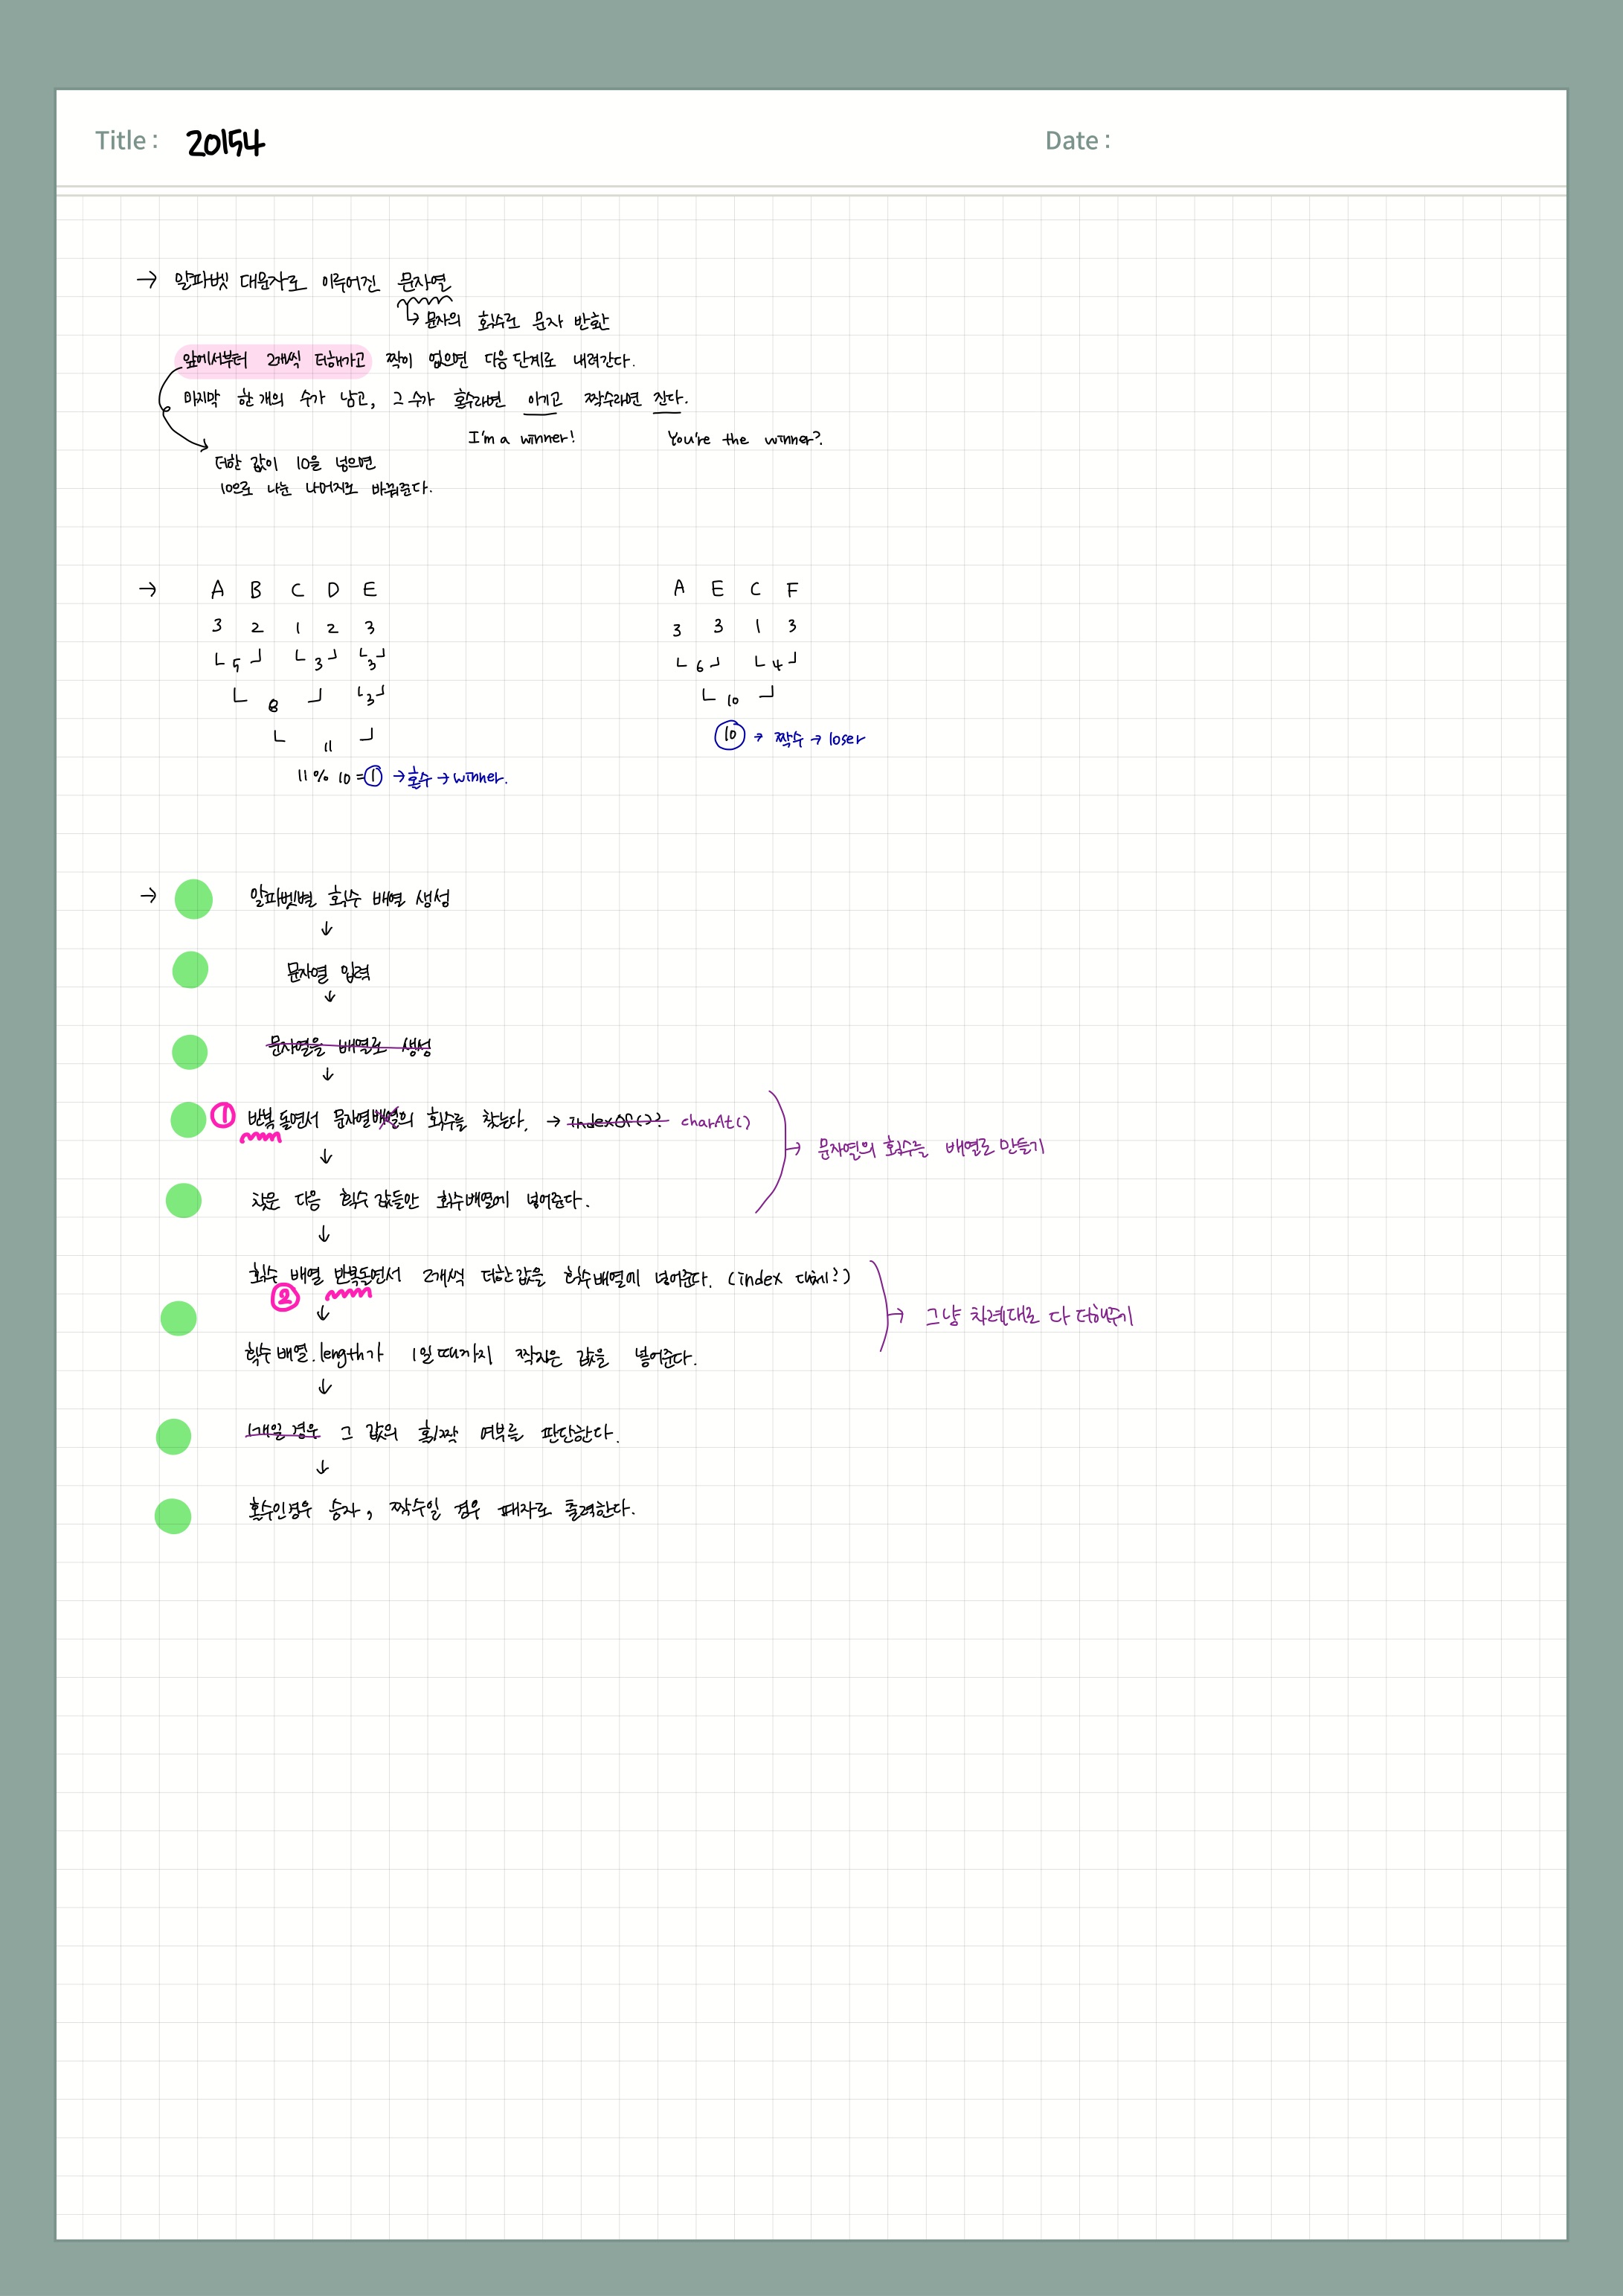 Title : 20154
Date :
→ 알파벳 대문자로 이루어진 문자열
↳ 문자의 획수로 문자 변환
앞에서부터 2개씩 더해가고 짝이 없으면 다음 단계로 내려간다.
마지막 한 개의 수가 남고, 그 수가 홀수라면 이기고 짝수라면 진다.
I'm a winner! You're the winner?
더한 값이 10을 넘으면
10으로 나눈 나머지로 바꿔준다.
→ A B C D E
3 2 1 2 3
5 3 3
8 3
11
11 % 10 = 1 → 홀수 → winner.
A E C F
3 3 1 3
6 4
10
10 → 짝수 → loser
→ 알파벳별 획수 배열 생성
↓
문자열 입력
↓
문자열을 배열로 생성
↓
① 반복 돌면서 문자열배열의 획수를 찾는다. → indexOf()? charAt()
→ 문자열의 획수를 배열로 만들기
↓
찾은 다음 획수 값들만 획수배열에 넣어준다.
↓
획수 배열 반복돌면서 2개씩 더한값을 획수배열에 넣어준다. (index 대체?)
② ↓
→ 그냥 차례대로 다 더해주기
획수 배열.length가 1일 때까지 짝지은 값을 넣어준다.
↓
1개일 경우 그 값의 홀/짝 여부를 판단한다.
↓
홀수인경우 승자, 짝수일 경우 패자로 출력한다.